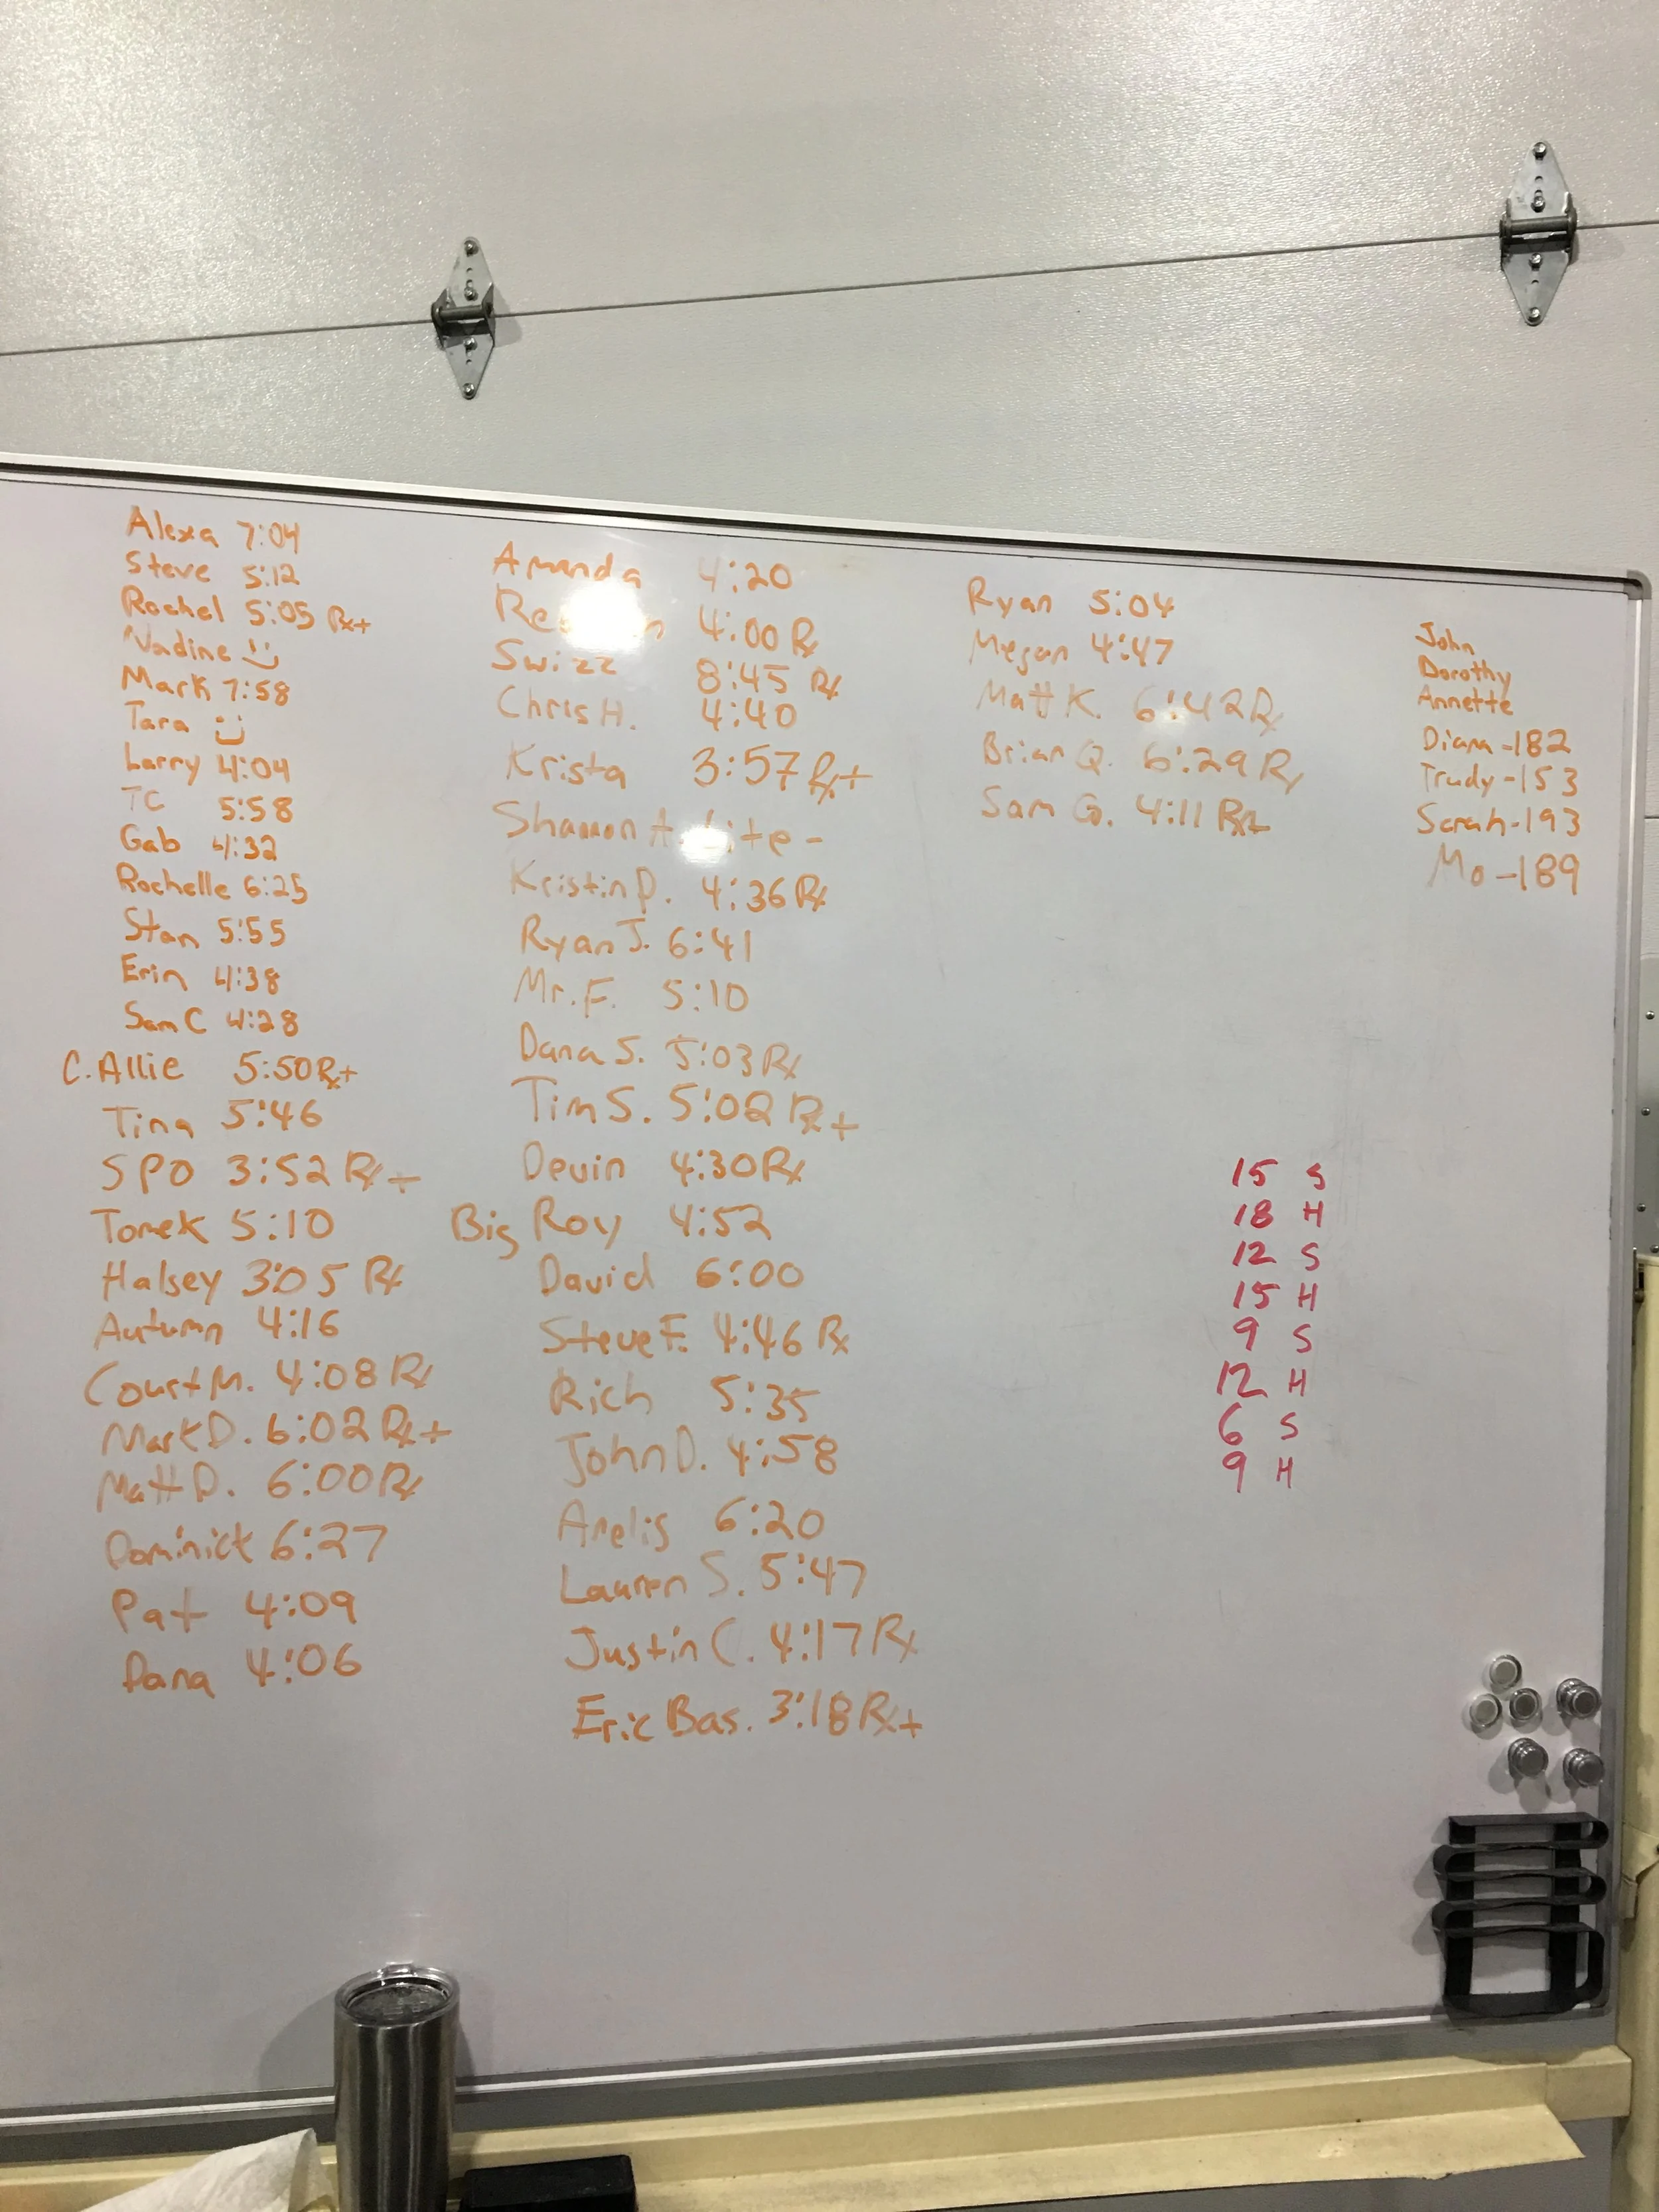 Alexa 7:04
Steve 5:12
Rachel 5:05 Rx+
Nadine
Mark 7:58
Tara
Larry 4:04
TC 5:58
Gab 4:32
Rochelle 6:25
Stan 5:55
Erin 4:38
Sam C 4:28
C. Allie 5:50 Rx+
Tina 5:46
SPO 3:52 Rx+
Tomek 5:10
Halsey 3:05 Rx
Autumn 4:16
Court M. 4:08 Rx
Mark D. 6:02 Rx+
Matt D. 6:00 Rx
Dominick 6:27
Pat 4:09
Dana 4:06
Amanda 4:20
4:00 Rx
Swizz 8:45 Rx
Chris H. 4:40
Krista 3:57 Rx+
Shannon A. Lite -
Kristin D. 4:36 Rx
Ryan J. 6:41
Mr. F. 5:10
Dana S. 5:03 Rx
Tim S. 5:02 Rx+
Devin 4:30 Rx
Big Roy 4:52
David 6:00
Steve F. 4:46 Rx
Rich 5:35
John D. 4:58
Arelis 6:20
Lauren S. 5:47
Justin C. 4:17 Rx
Eric Bas. 3:18 Rx+
Ryan 5:04
Megan 4:47
Matt K. 6:42 Rx
Brian Q. 6:29 Rx
Sam G. 4:11 Rx+
John
Dorothy
Annette
Diana -182
Trudy -153
Sarah -193
Mo -189
15 S
18 H
12 S
15 H
9 S
12 H
6 S
9 H